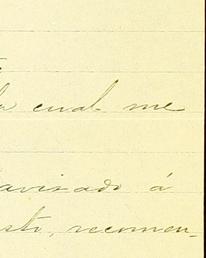 la cual me
avisado á
sto, recomen-